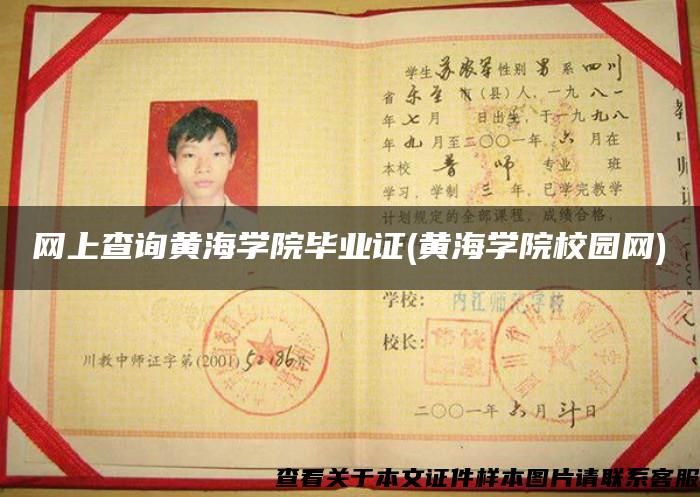 学生苏家军性别男系四川
省乐至市(县)人,一九八一
年七月 日出生,于一九九八
年九月至二〇〇一年六月在
本校普师专业 班
学习,学制三年,已学完教学
计划规定的全部课程,成绩合格,
网上查询黄海学院毕业证(黄海学院校园网)
学校:内江师范学校
校长:
川教中师证字第(2001)52186号
二〇〇一年六月 日
查看关于本文证件样本图片请联系客服